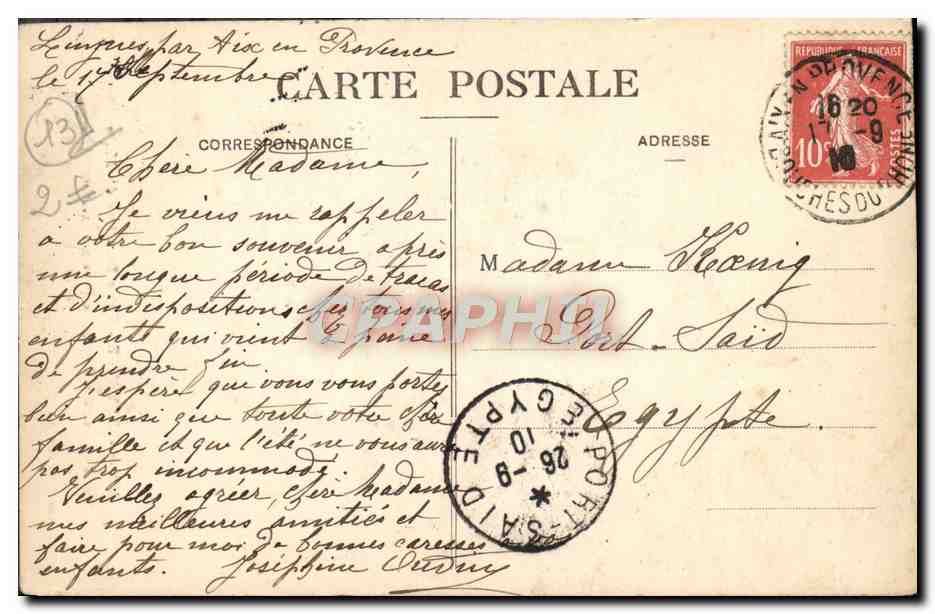 par Aix en Provence
le 17 Septembre
CARTE POSTALE
CORRESPONDANCE
ADRESSE
REPUBLIQUE FRANÇAISE
10c
POSTES
AIX EN PROVENCE
BOUCHES DU RHONE
16 20
17 -9
10
13
2
Chère Madame,
Je viens me rappeler
à votre bon souvenir après
une longue période de tracas
et d'indispositions chez tous mes
enfants qui vient à peine
de prendre fin
J'espère que vous vous portez
bien ainsi que toute votre chère
famille et que l'été ne vous aura
pas trop incommodé.
Veuillez agréer, chère Madame
mes meilleures amitiés et
faire pour moi de bonnes caresses
enfants. Joséphine
Madame Kœnig
Port-Saïd
Egypte.
PORT-SAID
EGYPTE
26 -9
10
CPAPHIL